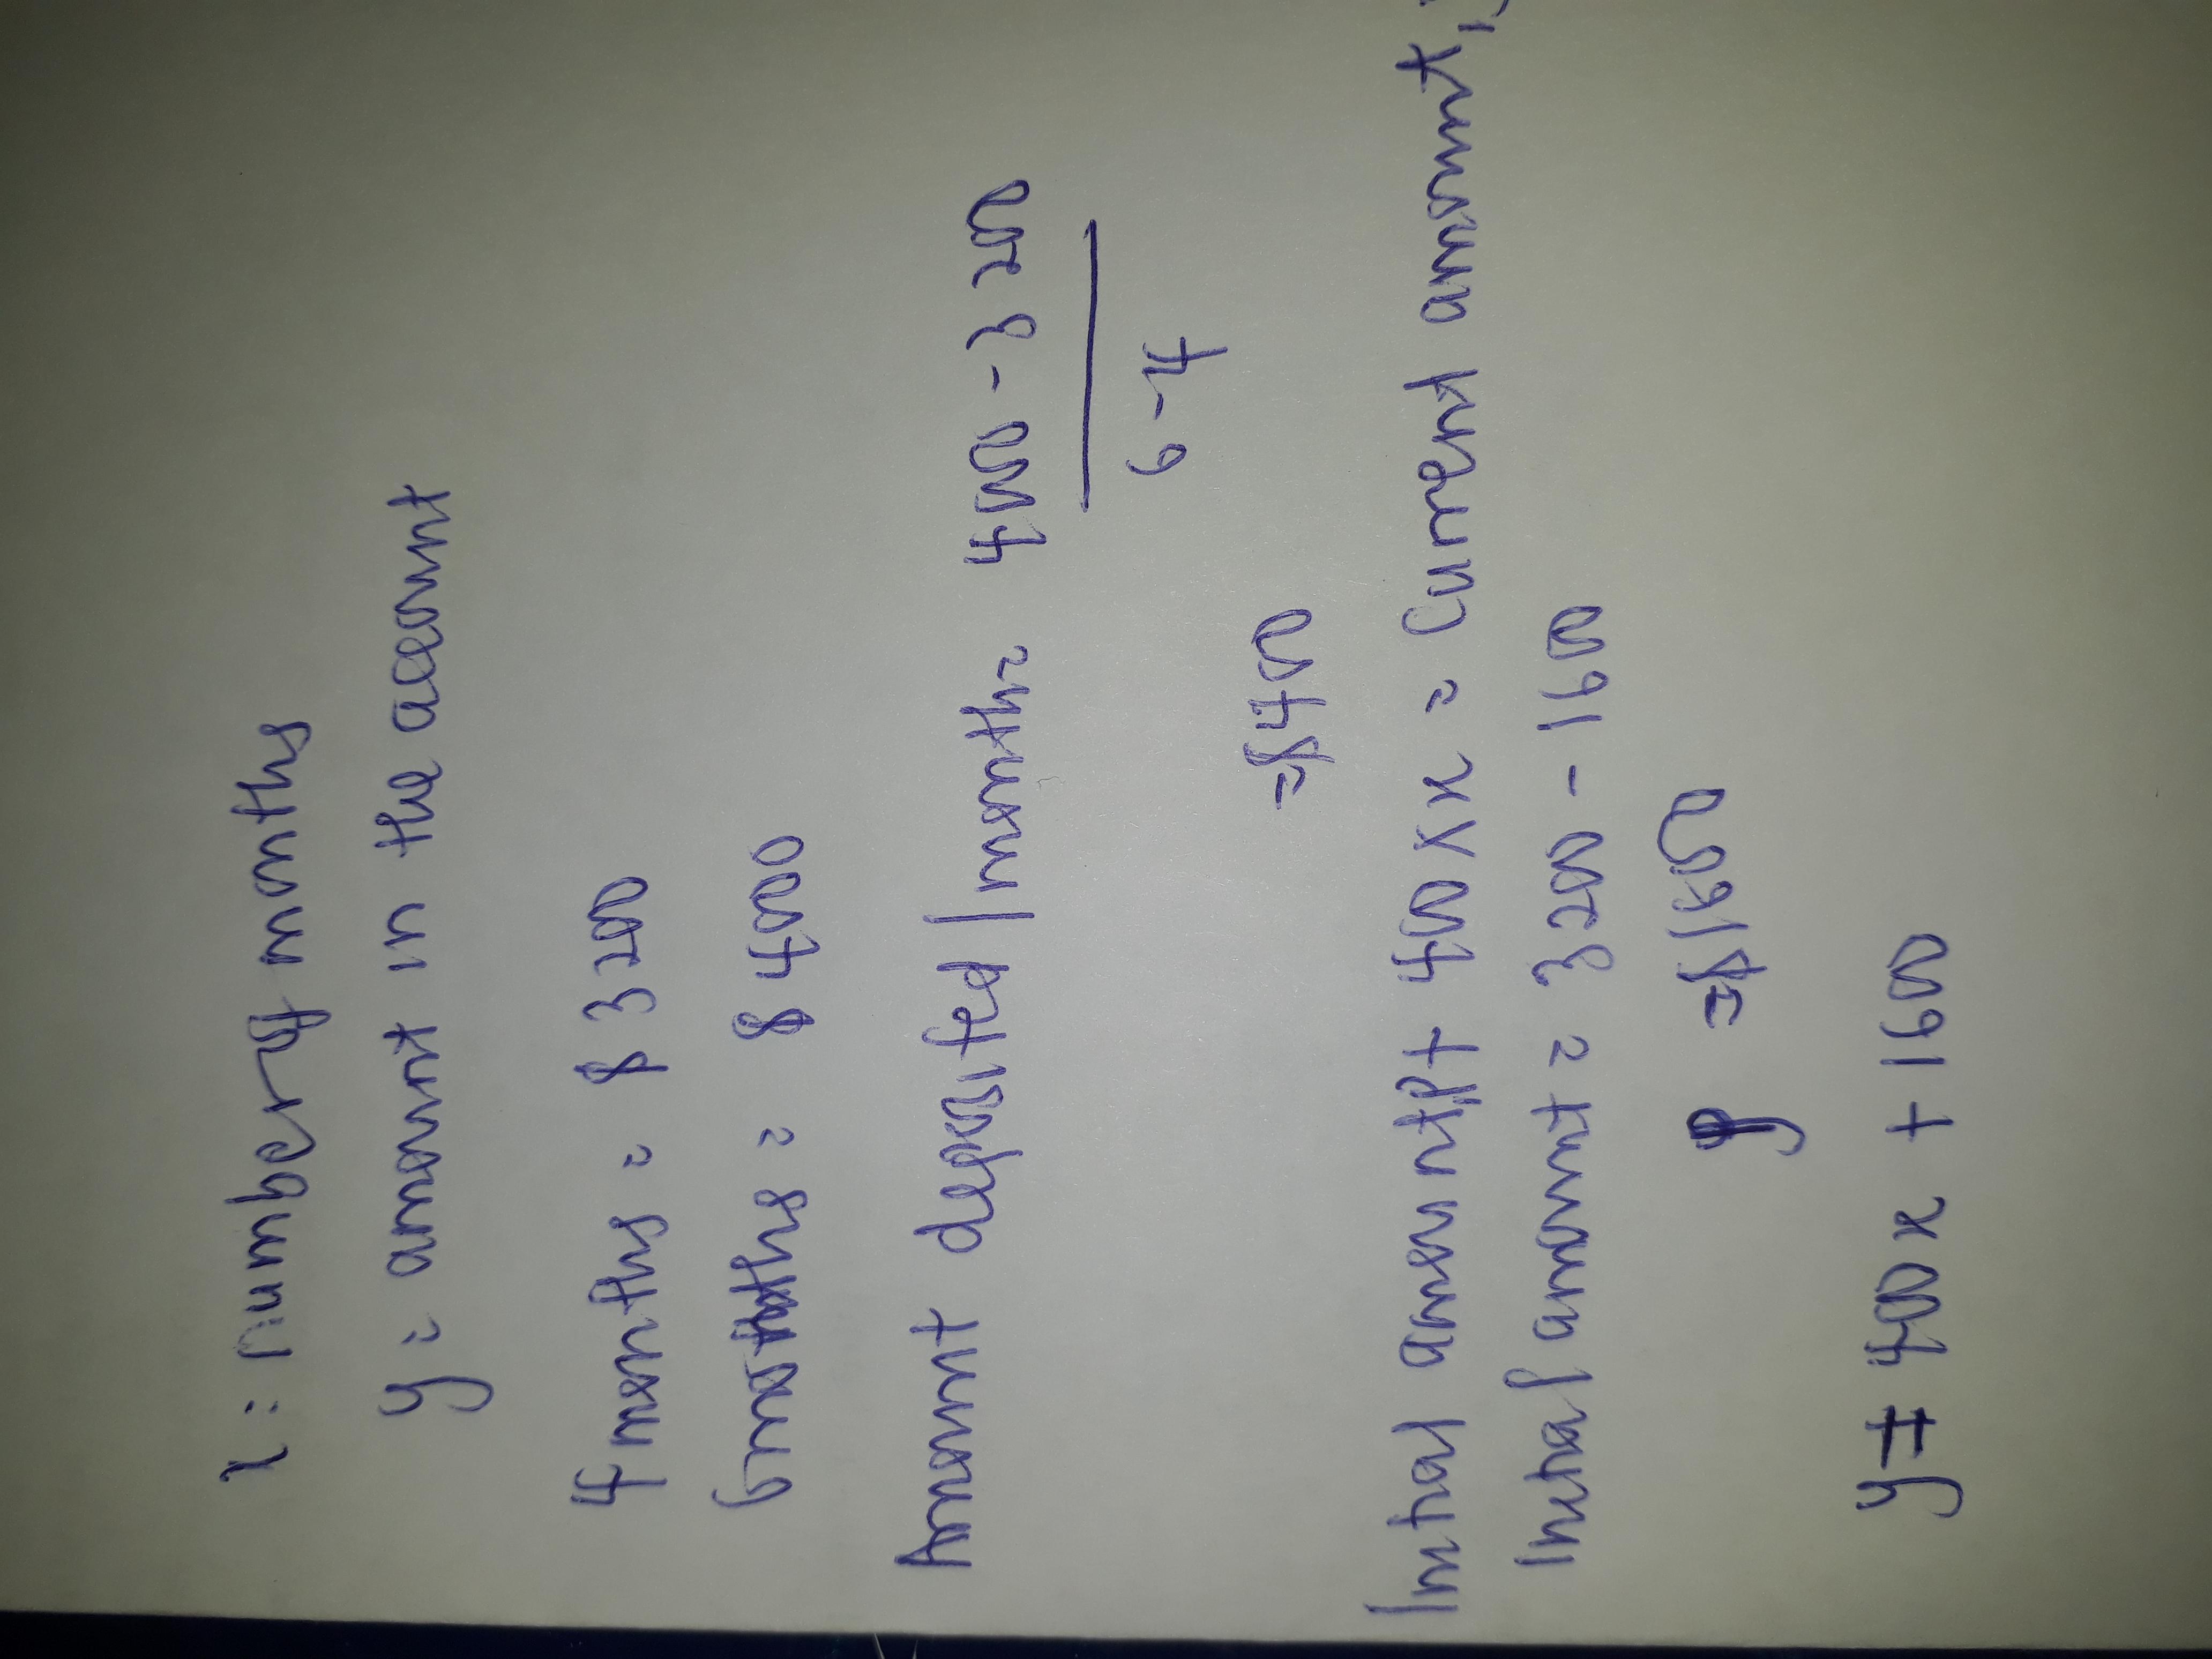 x : number of months
y = amount in the account
4 months = $ 3200
6 months = $ 4000
Amount deposited / month = 4000 - 3200
6 - 4
= $400
Initial amount + 400 x x = Current amount
Initial amount = 3200 - 1600
= $1600
y = 400 x + 1600